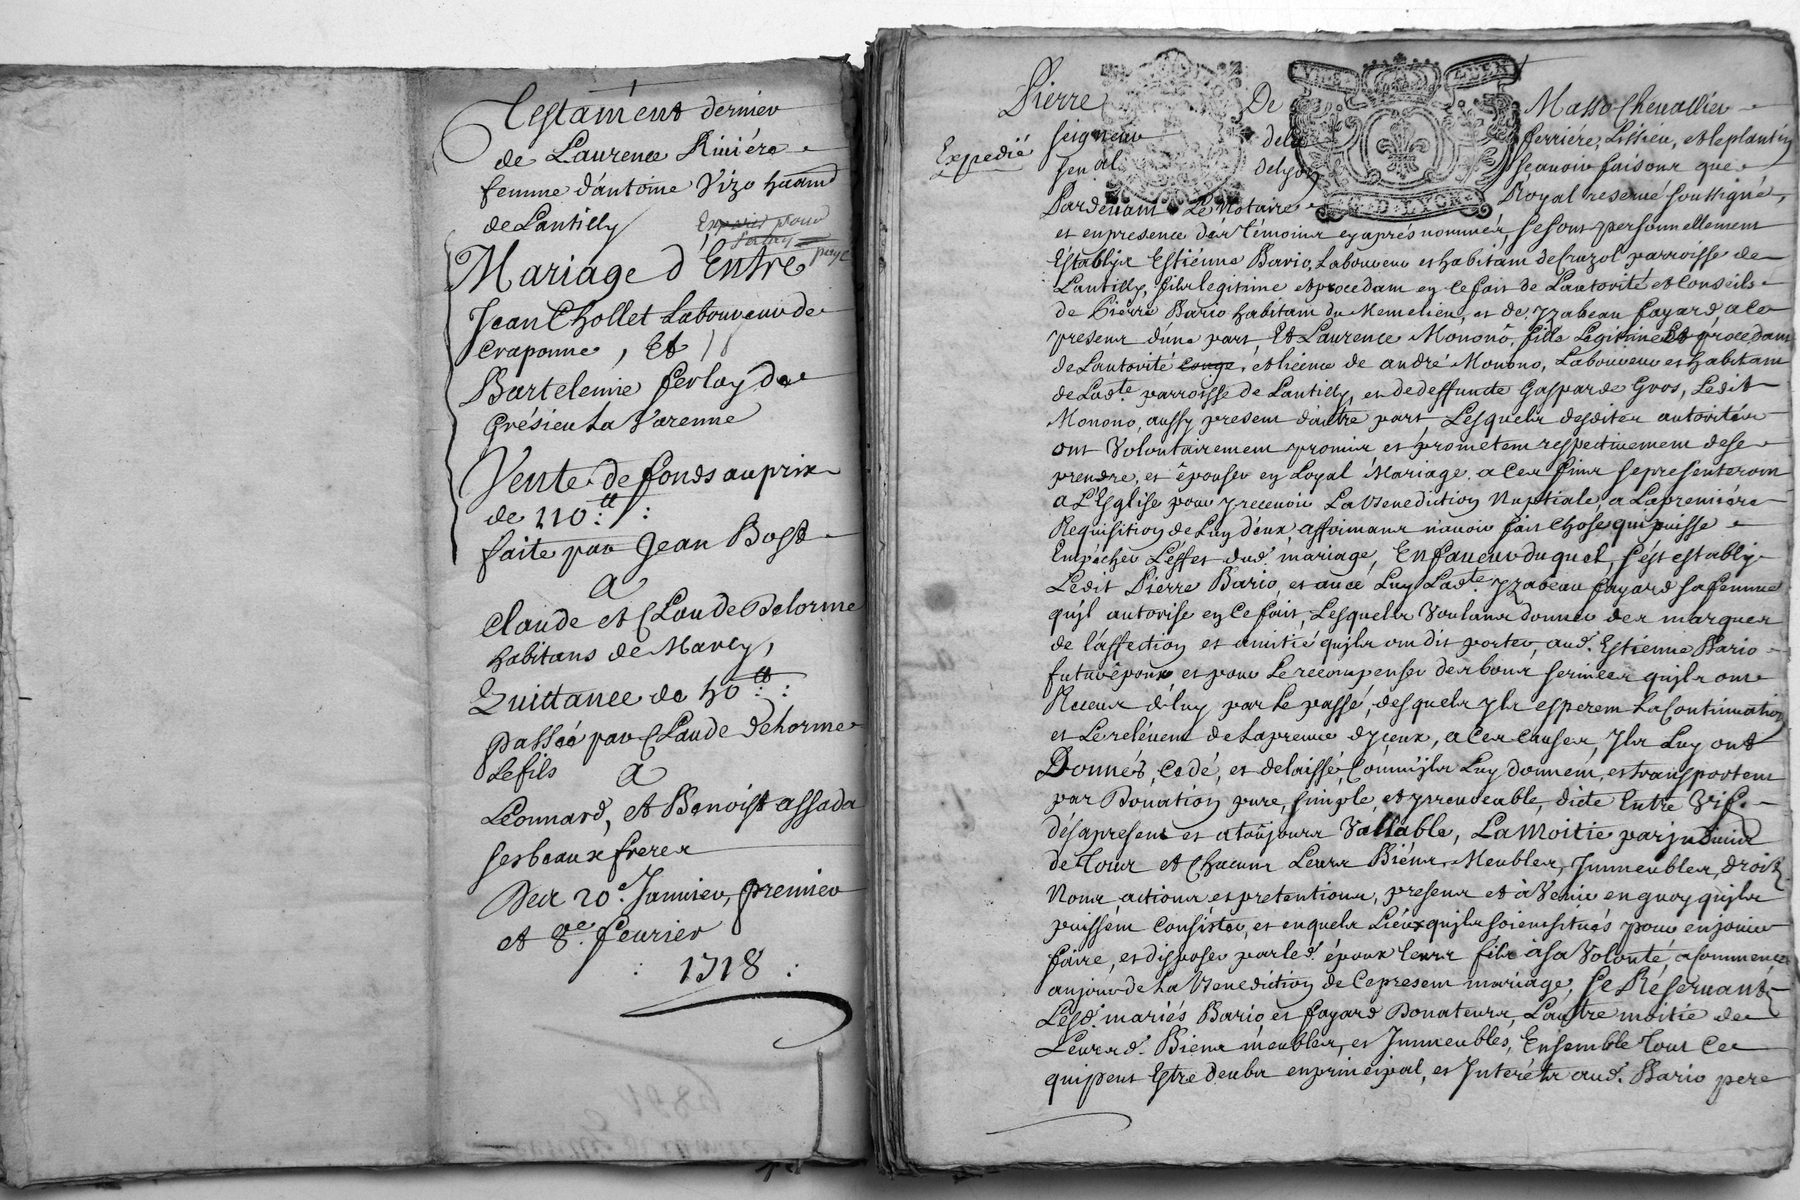 Testament dernier
de Laurence Riviére
femme d'antoine Vizo hãant
de Lantilly
Expedié pour
payé
Mariage d'Entre
Jean Chollet Laboureur de
Craponne, Et
Bartelemie ferlay de
Grésieu La Varenne
Vente de fonds au prix
de 110 tt :
faite par Jean Bost
A
Claude et Claude Delorme
habitans de Marcy,
Quittance de 50 tt :
passée par Claude Delorme
Le fils
A
Léonnard, et Benoist assada
ses beaux freres
Des 20e Janvier, premier
et 8me fevrier
: 1718 :
Pierre De Masso Chevallier
Expedié
seigneur dela ferriere, Lissieu, et le plantin
senal delyon sçauoir faisons que
Pardeuant Le Notaire Royal reserué soussigné,
et en presence des temoins cy aprés nommés, se sont personnellement
Establis Estiénne Bario, Laboureur et habitant de Cruzol parroisse de
Lantilly, fils legitime et procedant en ce fait de Lautorité et Conseils
de Pierre Bario habitant du Memelieu, et de yzabeau fayard, a ce
presens d'une part, Et Laurence Monono, fille Legitime Et procedant
de Lautorité Conge, et licence de andré Monono, Laboureur et habitant
de Ladte. parroisse de Lantilly, et de deffuncte Gasparde Gros, Ledit
Monono, aussy present d'autre part, Lesquels desdites autorités
ont Volontairement promis et promettent respectiuement de se
prendre, et épouser en Loyal Mariage, a ces fins se presenteront
a L'Esglise pour y receuoir La Benediction Nuptiale, a La premiére
Requisition de Luy d'eux, affirmans n'auoir fait chose qui puisse
Empécher L'effet dud. mariage, En faueur du quel, s'est establi
Ledit Pierre Bario, et auec Luy Ladte. yzabeau fayard sa femme
qu'il autorise en ce fait, Lesquels Voulans donner des marques
de l'affection et amitié qu'ils ont dit porter, aud. Estienne Bario
futur époux et pour Le recompenser des bons seruices qu'ils ont
Receus de luy par Le passé, desquels yls esperent La Continuation
et Le releuent de La preuue d'yceux, a ces Causes, yls Luy ont
Donnés, Cedé, et delaissé, Comm'ils Luy donnent, et transportent
par Donation pure, simple, et yrreuocable, dicte Entre Vifs
dés apresent et a toûjours Vallable, La Moitié par judiuis
de Tous et chacuns Leurs Biéns, Meubles, Immeubles, droits
Noms, actions et pretentions, presens et à Venir en quoy qu'ils
puissent Consister, et en quels Lieux qu'ils soient situés pour en jouir
faire, et disposer par led. époux leur fils à sa Volonté a Commencer
aujour de La Benediction de Ce present mariage, se Réseruants
Lesd. mariés Bario et fayard Donateurs, L'autre moitié de
Leursd. Biens meubles, et Immeubles, Ensemble Tout Ce
qui peut Estre deub en principal, et Interéts aud. Bario pere